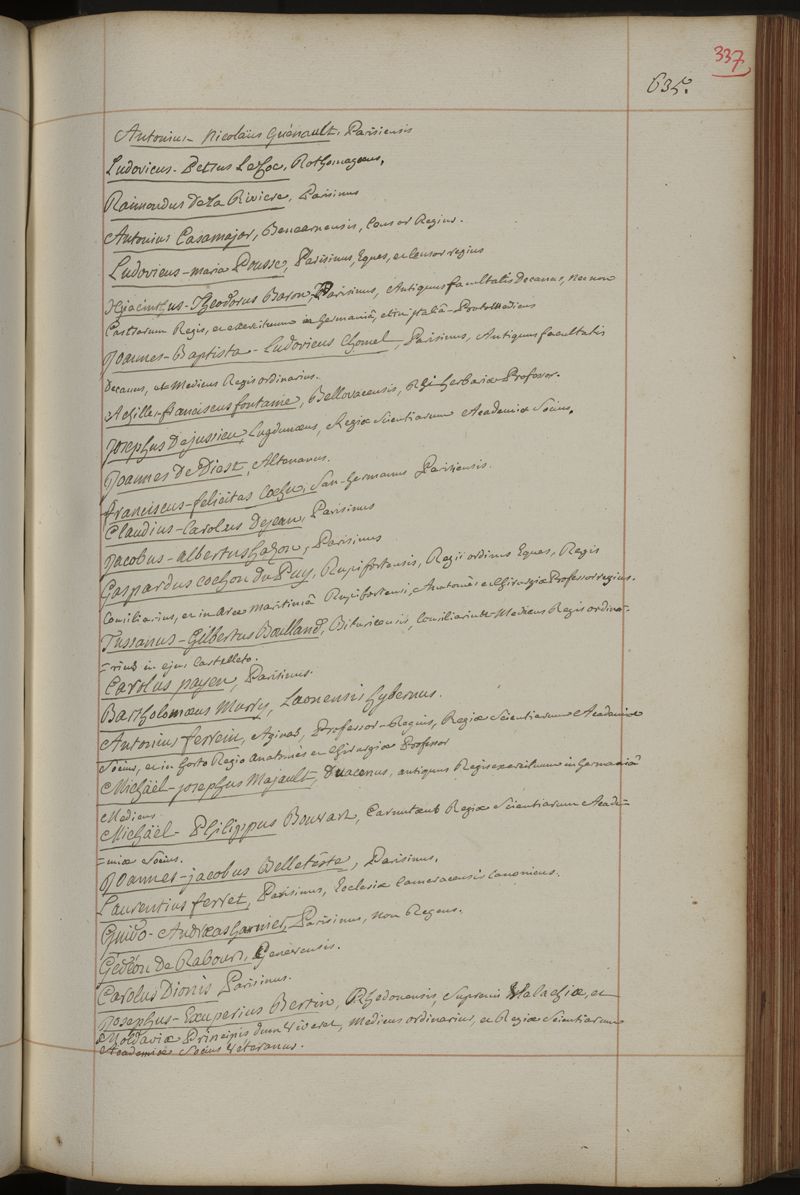 337
635.
Antonius-Nicolaüs Guénault, Parisiensis
Ludovicus-Petrus Lehoc, Rothomagæus,
Raimondus De La Riviere, Parisinus
Antonius Casamajor, Benearnensis, Censor Regius.
Ludovicus-maria Pousse, Parisinus, Eques, et censor regius
Hyacinthus-Theodorus Baron, Parisinus, Antiquus facultatis Decanus, necnon
Castrorum Regis, et exercituum in Germaniâ, et in italiâ Proto Medicus
Joannes-Baptista-Ludovicus Chomel, Parisinus, Antiquus facultatis
Decanus, et Medicus Regis ordinarius.
Achilles-franciscus fontaine, Bellovacensis, Rei herbariæ Professor.
Josephus Dejussieu, Lugdunæus, Regiæ scientiarum Academiæ Socius,
Joannes De Diest, Altonanus.
franciscus-felicitas Cochu, San-Germanus Parisiensis.
Claudius-Carolus Dejean, Parisinus
Jacobus-albertus hazon, Parisinus
Gaspardus cochon du Puy, Rupifortensis, Regii ordinis Eques, Regis
Consiliarius, et in Arce maritimâ Rupifortensi, Anatomes et Chirurgiæ Professor regius.
Tussanus-Gilbertus Boulland, Bituricensis, Consiliarius Medicus Regis ordina=
=rius in ejus Castelleto.
Carolus payen, Parisinus.
Bartholomæus Murry, Laonensis hybernus.
Antonius ferrein, Aginas, Professor Regius, Regiæ scientiarum Academiæ
Socius, et in horto Regio anatomes et chirurgiæ Professor
Michäel-josephus Majault, Duacenus, antiquus Regis exercituum in Germaniâ
Medicus
Michäel-Philippus Bouvart, Carnutæus Regiæ Scientiarum Acade=
=miæ Socius.
Joannes-jacobus Belletéste, Parisinus,
Laurentius ferret, Parisinus, Ecclesiæ Cameracensis Canonicus.
Guido-Andræas Garnier, Parisinus, non Regens.
Gédéon De Rabours, Genevensis.
Carolus Dionis Parisinus.
Josephus-Exuperius Bertin, Rhedonensis, Supremi Valachiæ, et
Moldaviæ Principis dum viveret, Medicus ordinarius, et Regiæ Scientiarum
Academiæ Socius Veteranus.